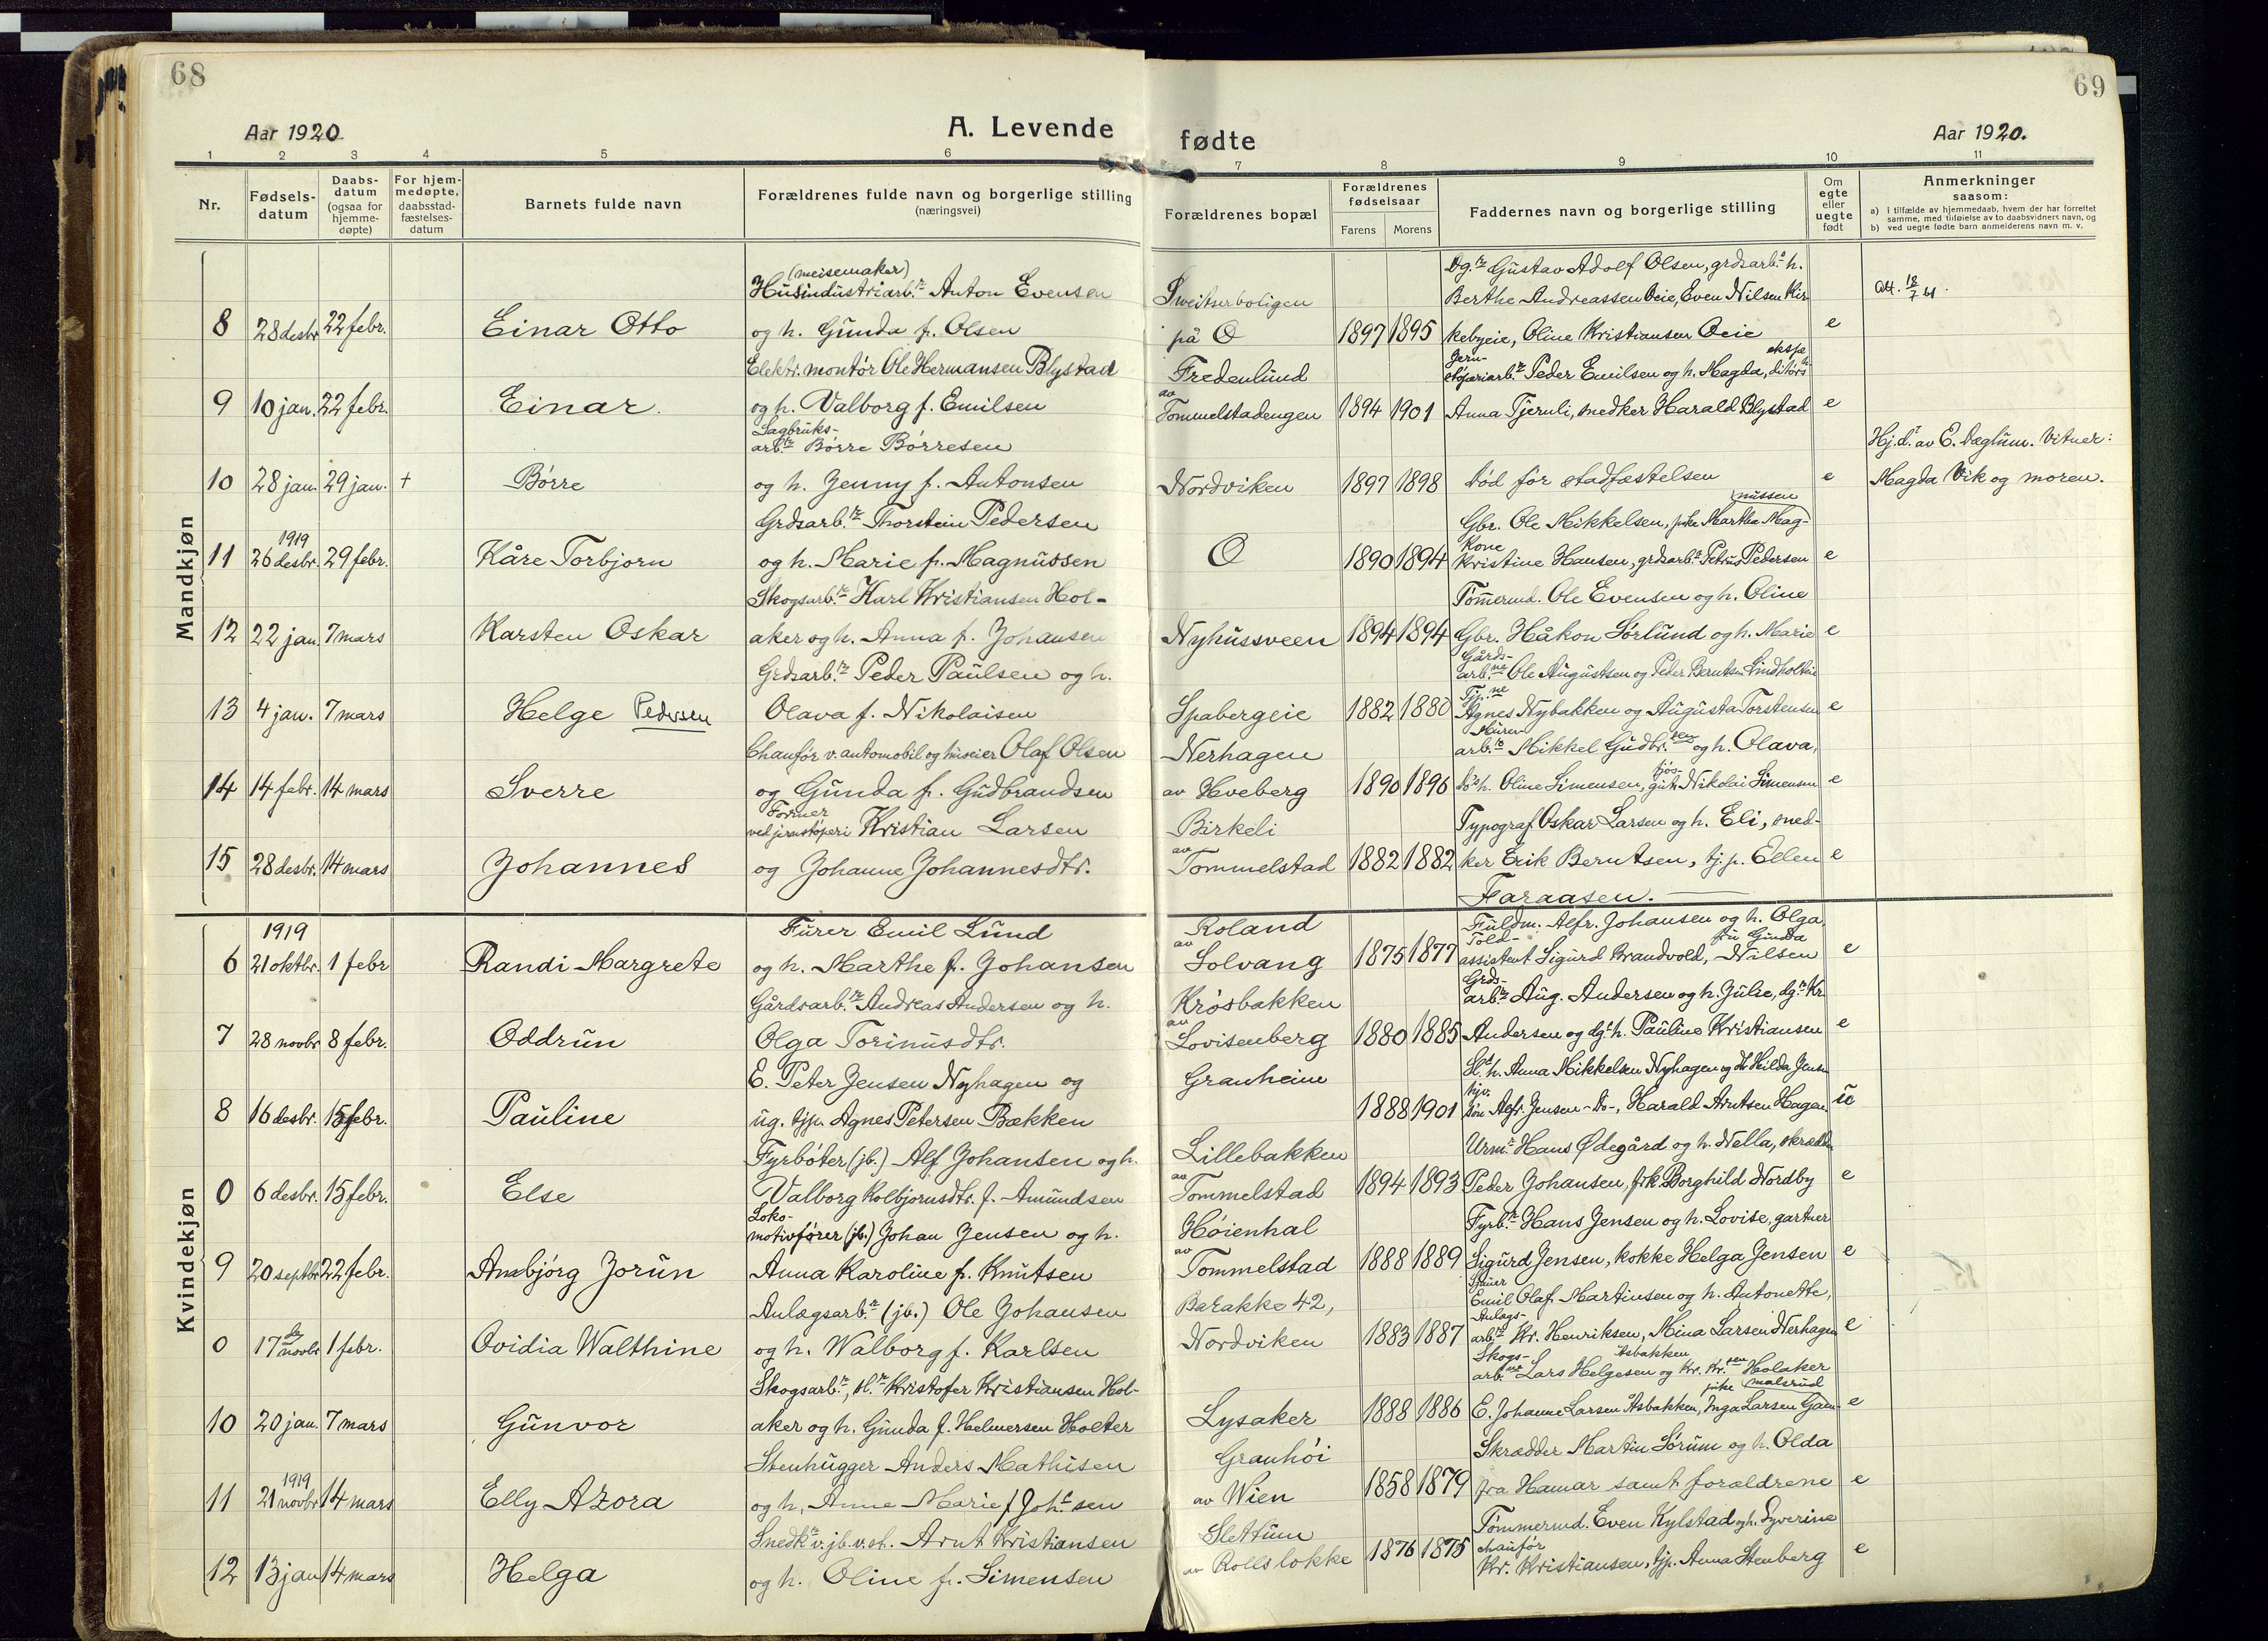 68
69
Aar 1920
A. Levende
fødte
Aar 1920.
1 2 3 4 5 6 7 8 9 10 11
Nr.
Fødsels-
datum
Daabs-
datum
(ogsaa for
hjemme-
døpte)
For hjem-
medøpte,
daabsstad-
fæstelses-
datum
Barnets fulde navn
Forældrenes fulde navn og borgerlige stilling
(næringsvei)
Forældrenes bopæl
Forældrenes
fødselsaar
Farens Morens
Faddernes navn og borgerlige stilling
Om
egte
eller
uegte
født
Anmerkninger
saasom:
a) i tilfælde av hjemmedaab, hvem der har forrettet
samme, med tilføielse av to daabsvidners navn, og
b) ved uegte fødte barn anmelderens navn m. v.
Mandkjøn
(meisemaker)
Husindustriarb.r Anton Evensen
Sweitserboligen
Dg.r Gustav Adolf Olsen, grdsarb.s h.
Berthe Andreassen Oeie, Even Nilsen Kir
Att. 18/7 41.
8 28 desbr 22 febr. Einar Otto og h. Gunda f. Olsen på O 1897 1895 kebyeie, Oline Kristiansen Oeie e
Elektr. montør Ole Hermansen Blystad Fredenlund
Jern-
støperiarb.r Peder Emilsen og h. Magda,
9 10 jan. 22 febr. Einar. og h. Valborg f. Emilsen av Tommelstadengen 1894 1901 Anna Tjernli, snedker Harald Blystad e
Sagbruks-
arb.r Børre Børresen
Hj.d.t av E. Dæglum. Vitner:
10 28 jan. 29 jan. + Børre og h. Jenny f. Antonsen Nordviken 1897 1898 Død før stadfæstelsen e Magda Vik og moren.
Grdsarb.r Thorstein Pedersen
Gbr. Ole Mikkelsen, pike Martha Mag-
nussen
1919
11 26 desbr. 29 febr. Kåre Torbjørn og h. Marie f. Magnussen O 1890 1894 Kone Kristine Hansen, grdsarb.r Petrus Pedersen e
Skogsarb.r Karl Kristiansen Hol-
Tømmermd. Ole Evensen og h. Oline
12 22 jan. 7 mars Karsten Oskar aker og h. Anna f. Johansen Nyhussveen 1894 1894 Gbr. Håkon Sørlund og h. Marie e
Grdsarb.r Peder Paulsen og h.
Gårds-
arb.ne Ole Augustsen og Peder Berntsen Lindholtin
13 4 jan. 7 mars Helge Pedersen Olava f. Nikolaisen Spabergeie 1882 1880 Tjp.ne Agnes Nybakken og Augusta Torstensen e
Chaufør v. automobil og huseier Olaf Olsen Nerhagen
Murer-
arb.r Mikkel Gudbr.sen og h. Olava,
14 14 febr. 14 mars Sverre og Gunda f. Gudbrandsen av Hveberg 1890 1896 Do's h. Oline Simensen, gut Nikolai Simensen e
Former
ved jernstøperi Kristian Larsen Birkeli
Typograf Oskar Larsen og h. Eli, sned-
15 28 desbr. 14 mars Johannes og Johanne Johannesdtr. av Tommelstad 1882 1882 ker Erik Berntsen, tj.p. Ellen e
Faraasen.
Kvindekjøn
1919
Furer Emil Lund Roland
Fuldm. Alfr. Johansen og h. Olga,
Told- fru Gunda
6 21 oktbr. 1 febr Randi Margrete og h. Marthe f. Johansen av Solvang 1875 1877 assistent Sigurd Brandvold, Nilsen e
Gårdsarb.r Andreas Andersen og h. Krøsbakken
Grds-
arb.r Aug. Andersen og h. Julie, dg.r Kr.
7 28 novbr 8 febr. Oddrun Olga Torinusdtr. av Lovisenberg 1880 1885 Andersen og dg.s h. Pauline Kristiansen e
E. Peter Jensen Nyhagen og Granheim
h. Anna Mikkelsen Nyhagen og Hilda Jensen
8 16 desbr. 15 febr. Pauline ug. tjp. Agnes Petersen Bækken 1888 1901 Alfr. Jensen -Do-, Harald Arntsen Hagen. ue
Fyrbøter (jb.) Alf Johansen og h. Lillebakken
Urm.r Hans Ødegård og h. Nella, skrædder
0 6 desbr. 15 febr. Else Valborg Kolbjørnsdtr. f. Amundsen av Tommelstad 1894 1893 Peder Johansen, frk Borghild Nordby e
Loko-
motivfører (jb.) Johan Jensen og h. Høienhal
Fyrb.r Hans Jensen og h. Lovise, gartner
9 20 septbr 22 febr. Ansbjørg Jorun Anna Karoline f. Knutsen av Tommelstad 1888 1889 Sigurd Jensen, kokke Helga Jensen e
Anlægsarb.r (jb.) Ole Johansen Barakke 42,
Emil Olaf Martinsen og h. Antonette,
0 17 novbr 1 febr. Ovidia Walthine og h. Walborg f. Karlsen Nordviken 1883 1887 Anlægs-arb.r Kr. Henriksen, Mina Larsen Nerhagen e
Skogsarb.r, sl.r Kristofer Kristiansen Hol-
Skogs- Asbakken
arb.ne Lars Helgesen og Kr. Kr.sen Holaker
pike malsrud
10 20 jan. 7 mars Gunvor aker og h. Gunda f. Helmersen Holter Lysaker 1888 1886 E. Johanne Larsen Asbakken, Inga Larsen Gam- e
Stenhugger Anders Mathisen Granhøi
Skrædder Martin Sørum og h. Olda
1919
11 21 novbr 14 mars Elly Azora og h. Anne Marie f. Joh.sen av Wien 1858 1879 fra Hamar samt forældrene e
Snedk.r v. jb. v. st. Arnt Kristiansen Slettum
Tømmermd. Even Kylstad og h. Syverine
chaufør
12 13 jan 14 mars Helga og h. Oline f. Simensen av Rollsløkke 1876 1875 Kr. Kristiansen, tjp. Anna Stenberg e